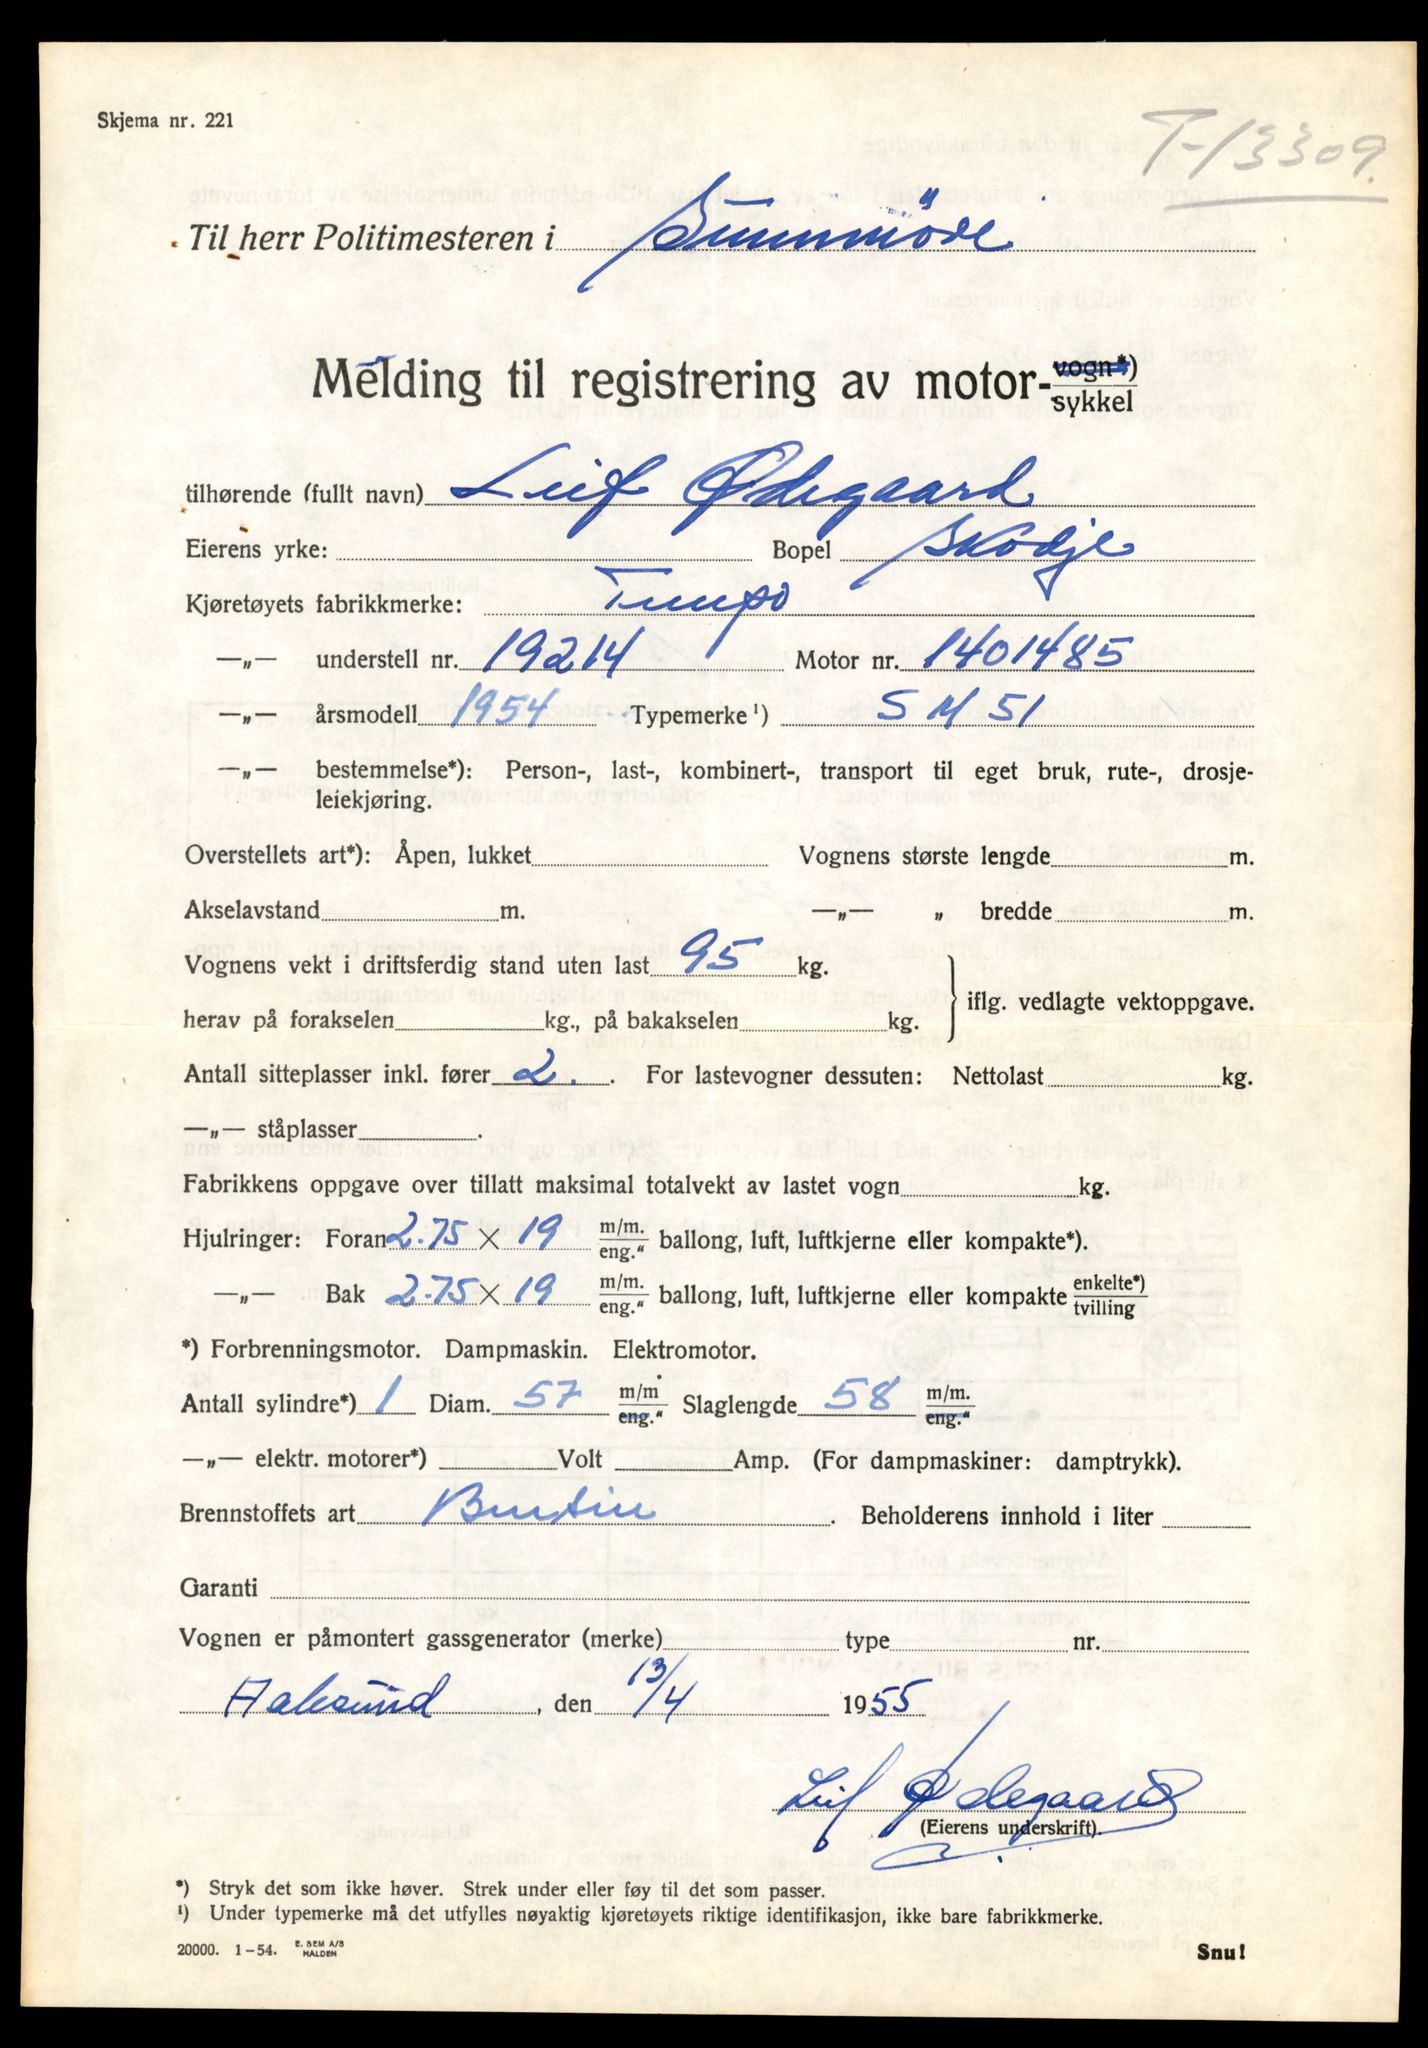 Skjema nr. 221
T-13309.
Til herr Politimesteren i Sunnmöre
Melding til registrering av motor-vogn*)
sykkel
tilhørende (fullt navn) Leif Ødegaard
Eierens yrke: Bopel Skodje
Kjøretøyets fabrikkmerke: Tempo
—„— understell nr. 19214 Motor nr. 1401485
—„— årsmodell 1954 Typemerke ¹) S M 51
—„— bestemmelse*): Person-, last-, kombinert-, transport til eget bruk, rute-, drosje-
leiekjøring.
Overstellets art*): Åpen, lukket Vognens største lengde m.
Akselavstand m. —„— „ bredde m.
Vognens vekt i driftsferdig stand uten last 95 kg.
iflg. vedlagte vektoppgave.
herav på forakselen kg., på bakakselen kg.
Antall sitteplasser inkl. fører 2. . For lastevogner dessuten: Nettolast kg.
—„— ståplasser .
Fabrikkens oppgave over tillatt maksimal totalvekt av lastet vogn kg.
Hjulringer: Foran 2.75 × 19 m/m. eng.“ ballong, luft, luftkjerne eller kompakte*).
—„— Bak 2.75 × 19 m/m. eng.“ ballong, luft, luftkjerne eller kompakte enkelte*) tvilling
*) Forbrenningsmotor. Dampmaskin. Elektromotor.
Antall sylindre*) 1 Diam. 57 m/m eng.“ Slaglengde 58 m/m. eng.“
—„— elektr. motorer*) Volt Amp. (For dampmaskiner: damptrykk).
Brennstoffets art Bensin . Beholderens innhold i liter
Garanti
Vognen er påmontert gassgenerator (merke) type nr.
Aalesund, den 13/4 1955
Leif Ødegaard
(Eierens underskrift).
*) Stryk det som ikke høver. Strek under eller føy til det som passer.
¹) Under typemerke må det utfylles nøyaktig kjøretøyets riktige identifikasjon, ikke bare fabrikkmerke.
20000. 1-54. E. SEM A/S
HALDEN
Snu!